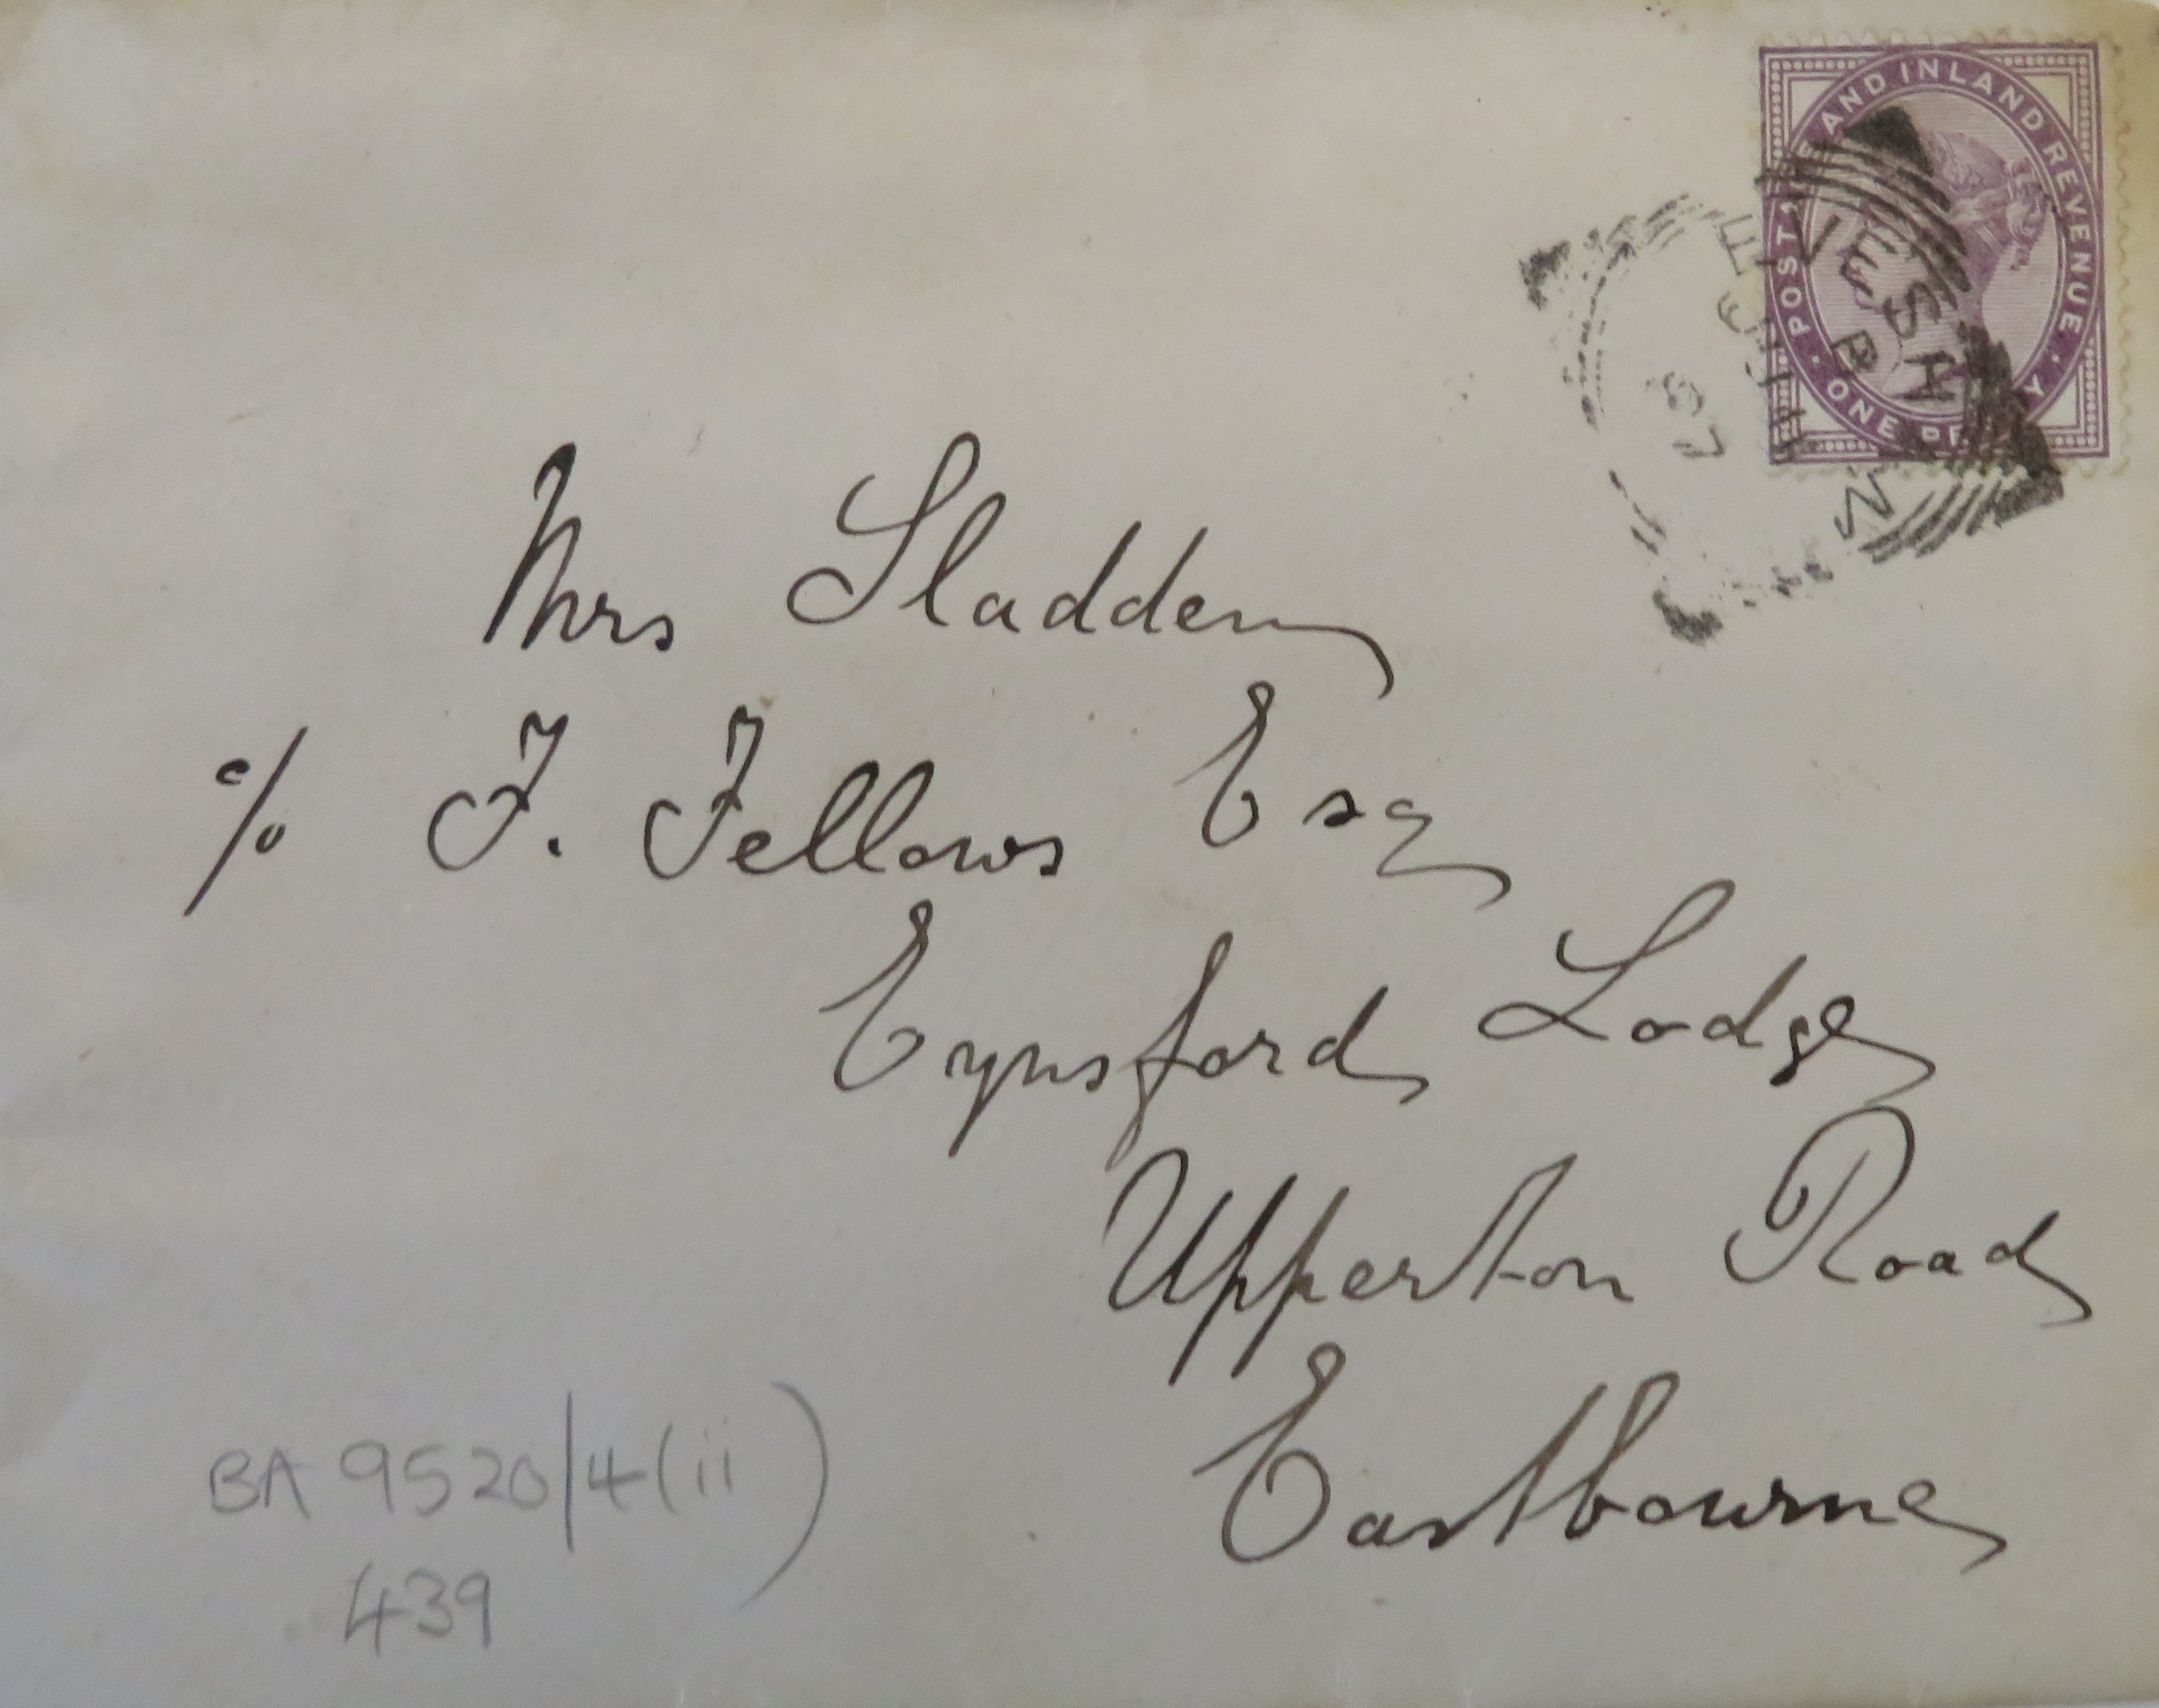 POSTAGE AND INLAND REVENUE · ONE PENNY ·
EVESHAM
Mrs Sladden
c/o F. Fellows Esq
Eynsford Lodge
Upperton Road
Eastbourne
BA 9520/4(ii)
439